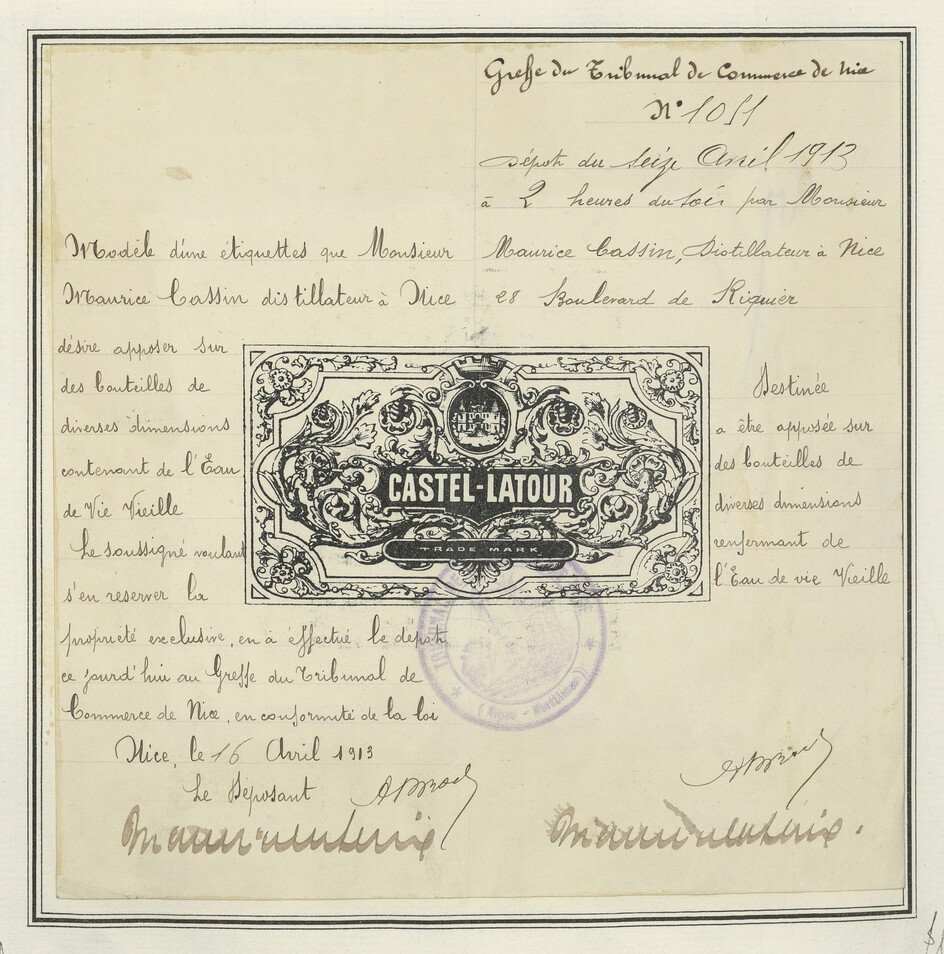 Greffe du Tribunal de Commerce de Nice
N° 1051
Dépot du Seize Avril 1913
à 2 heures du soir par Monsieur
Maurice Cassin, Distillateur à Nice
28 Boulevard de Riquier
Destinée
a être apposée sur
des bouteilles de
diverses dimensions
renfermant de
l'Eau de vie Vieille
Modèle d'une étiquettes que Monsieur
Maurice Cassin distillateur à Nice
désire apposer sur
des bouteilles de
diverses dimensions
contenant de l'Eau
de Vie Vieille
Le soussigné voulant
s'en réserver la
propriété exclusive, en à éffectué le dépot
ce jourd'hui au Greffe du Tribunal de
Commerce de Nice, en conformité de la loi
Nice, le 16 Avril 1913
Le Déposant
CASTEL-LATOUR
TRADE MARK